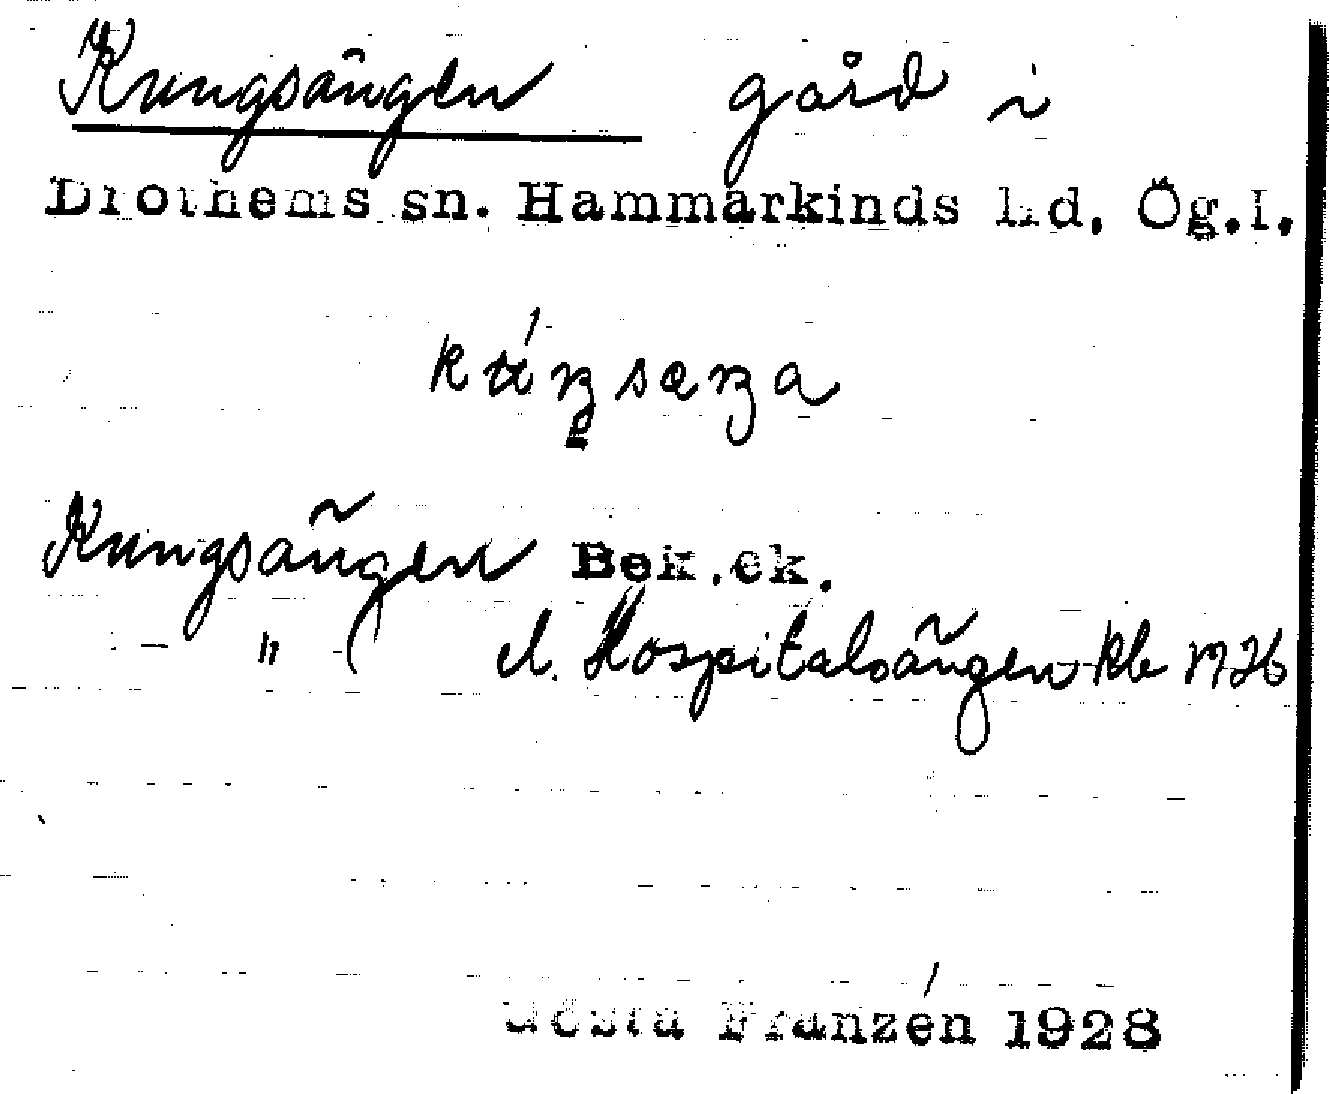 Kungsängen gård i
Drothems sn. Hammarkinds hd. Ög.l.
Kungsängen Bek.ek.
— " — el. Hospitalsängen Kb 1726
Gösta Franzén 1928